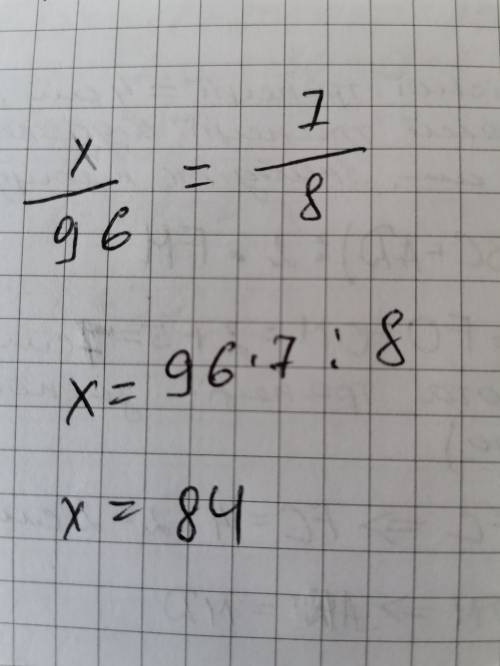 x/96 = 7/8
x = 96 · 7 : 8
x = 84